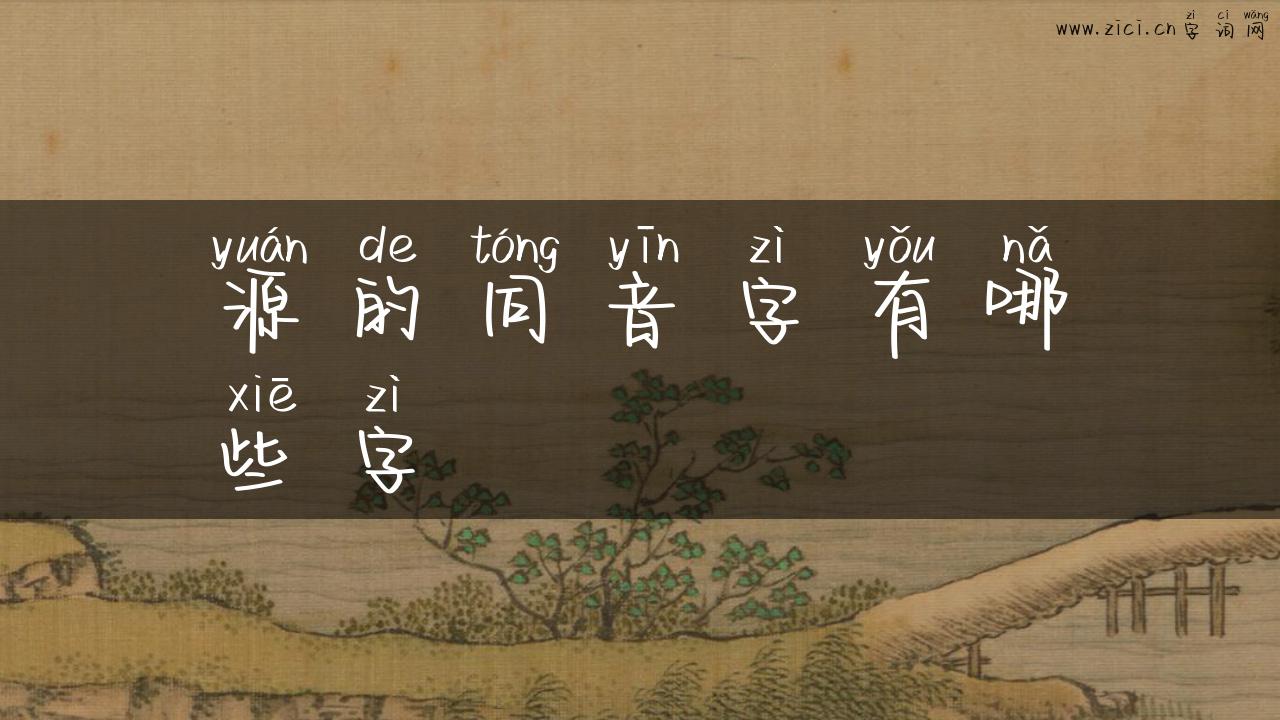 zì cí wǎng
www.zici.cn 字 词 网
yuán de tóng yīn zì yǒu nǎ
源 的 同 音 字 有 哪
xiē zì
些 字